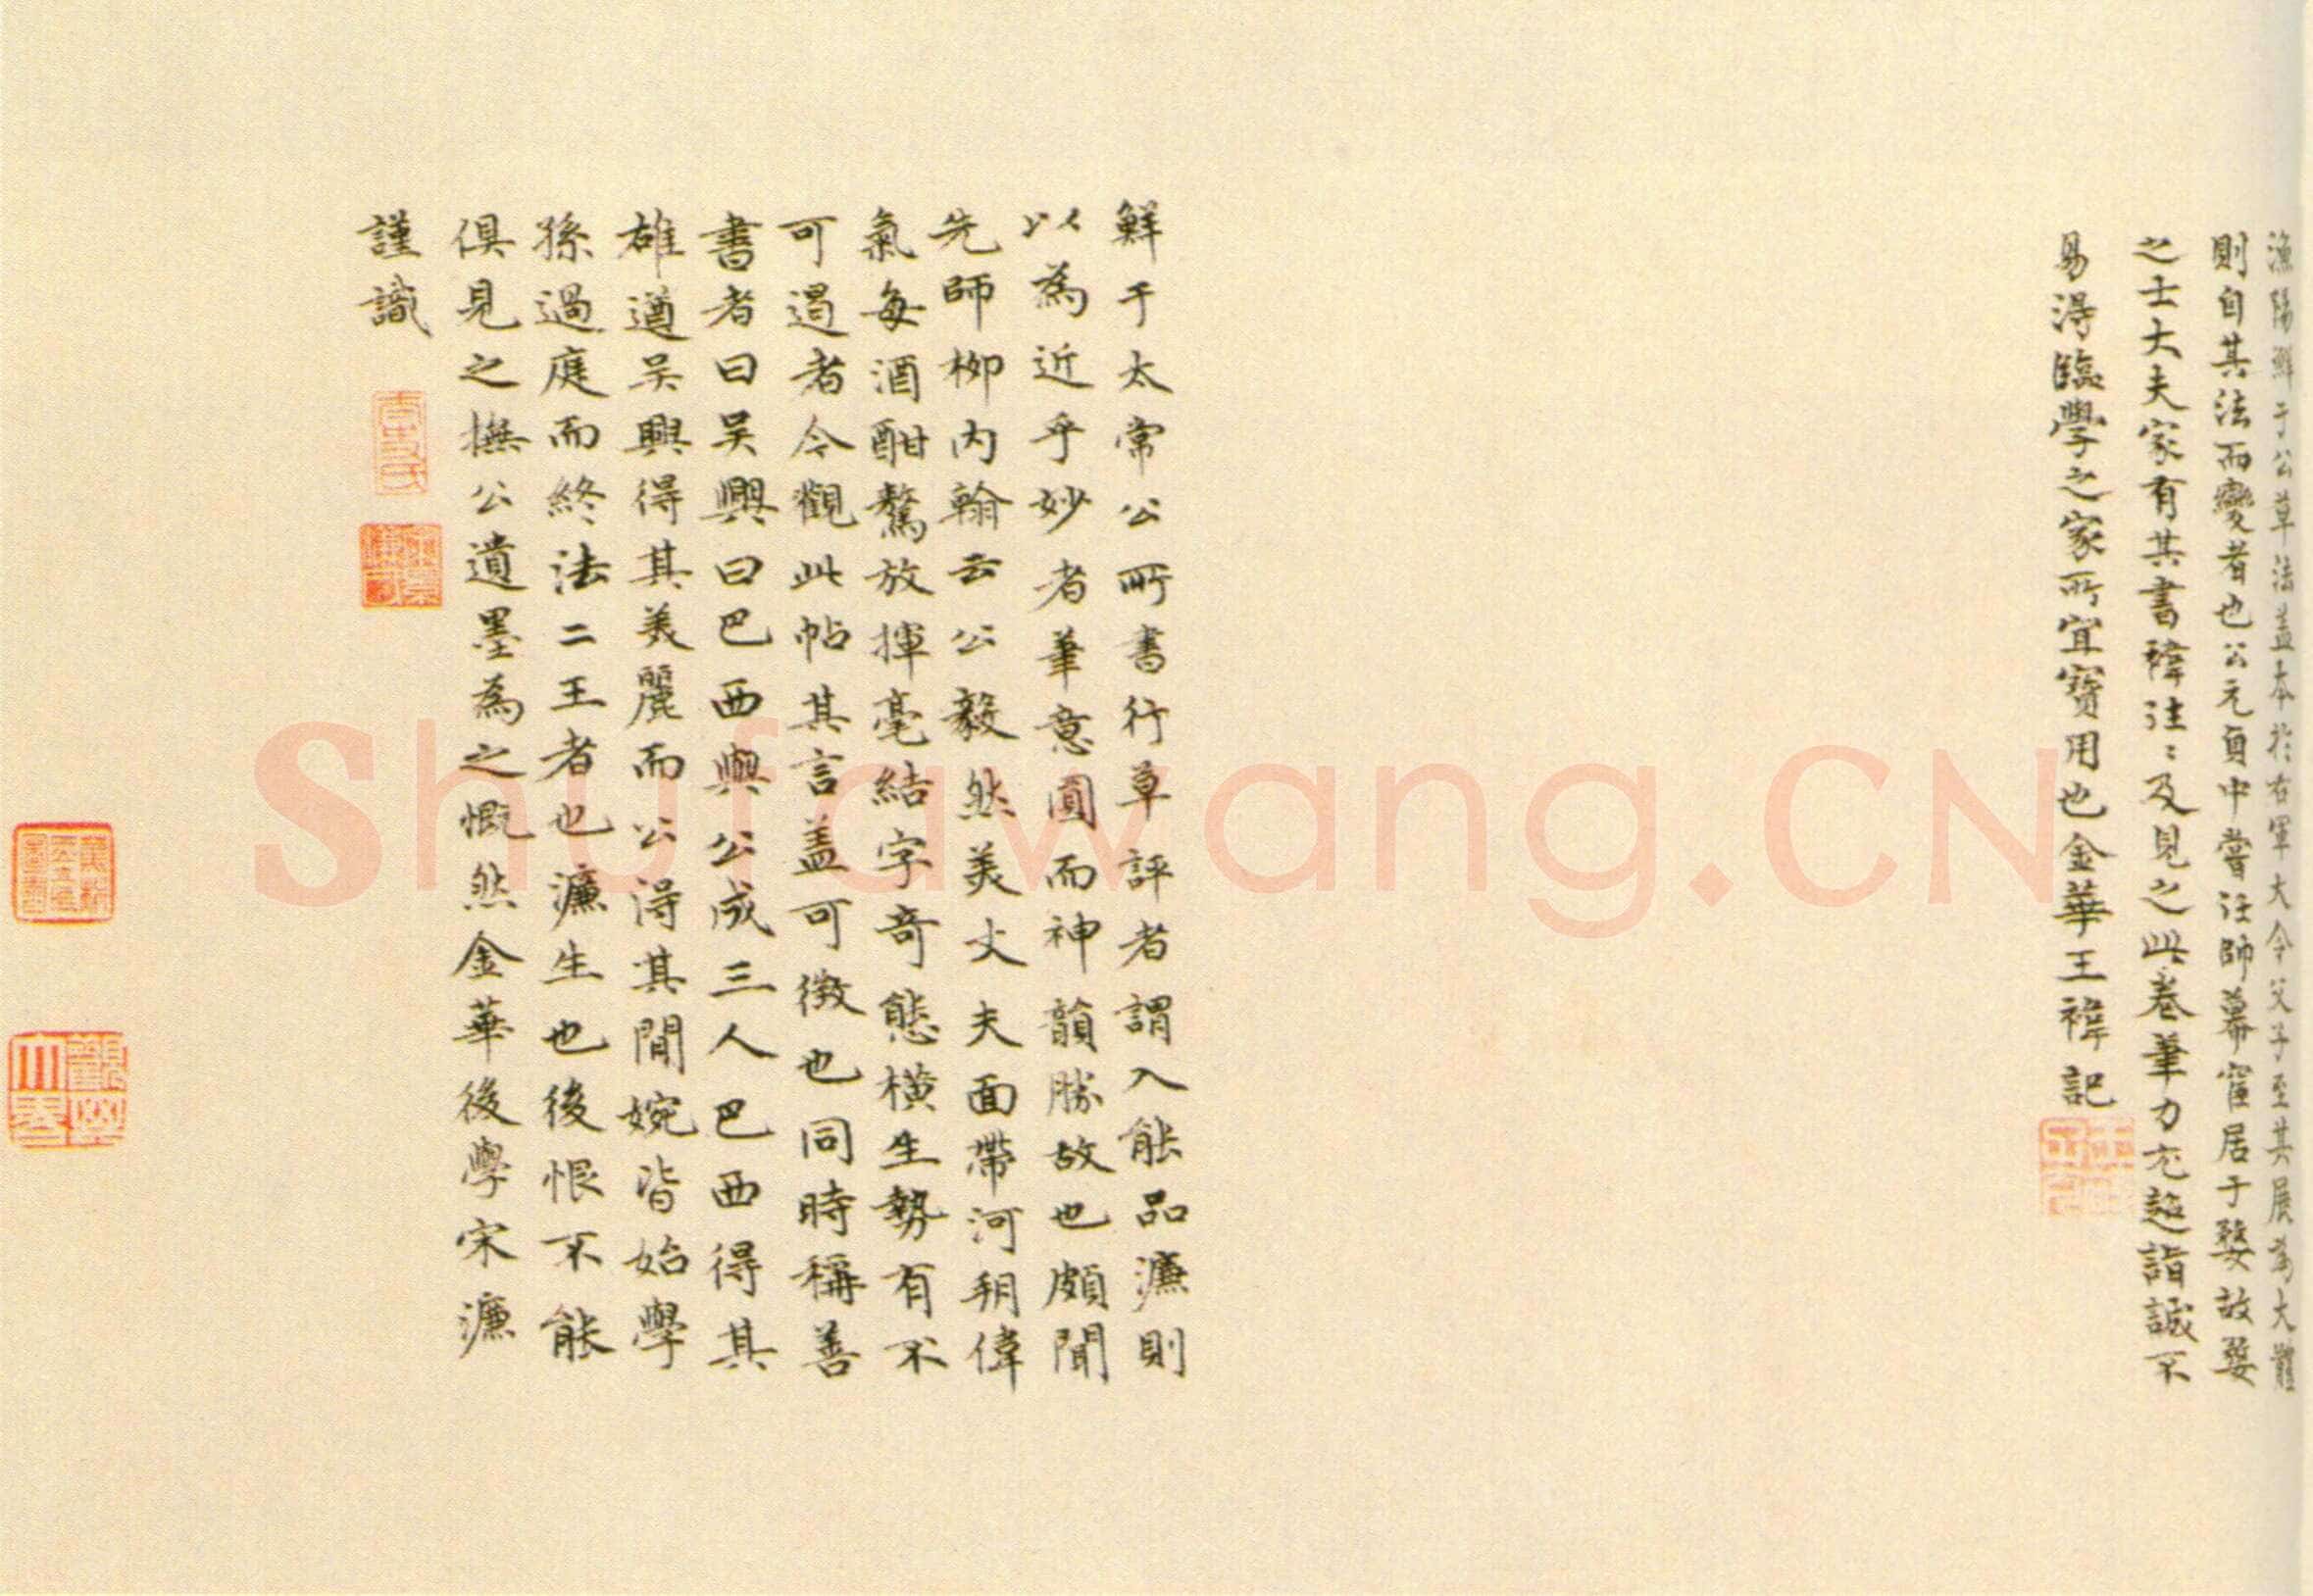 漁陽鮮于公草法盖本於右軍大令父子至其展為大體
則自其法而變者也公元貞中嘗往師幕寓居于婺故婺
之士大夫家有其書禕往〻及見之此卷筆力尤超詣誠不
易得臨學之家所宜寶用也金華王禕記
鮮于太常公所書行草評者謂入能品濂則
以為近乎妙者筆意圓而神韻勝故也頗聞
先師柳内翰云公毅然美丈夫面帶河朔偉
氣每酒酣驁放揮毫結字奇態橫生勢有不
可遏者今觀此帖其言盖可徵也同時稱善
書者曰吴興曰巴西與公成三人巴西得其
雄遒吴興得其美麗而公得其閒婉皆始學
孫過庭而終法二王者也濂生也後恨不能
俱見之撫公遺墨為之慨然金華後學宋濂
謹識
Shufawang.CN